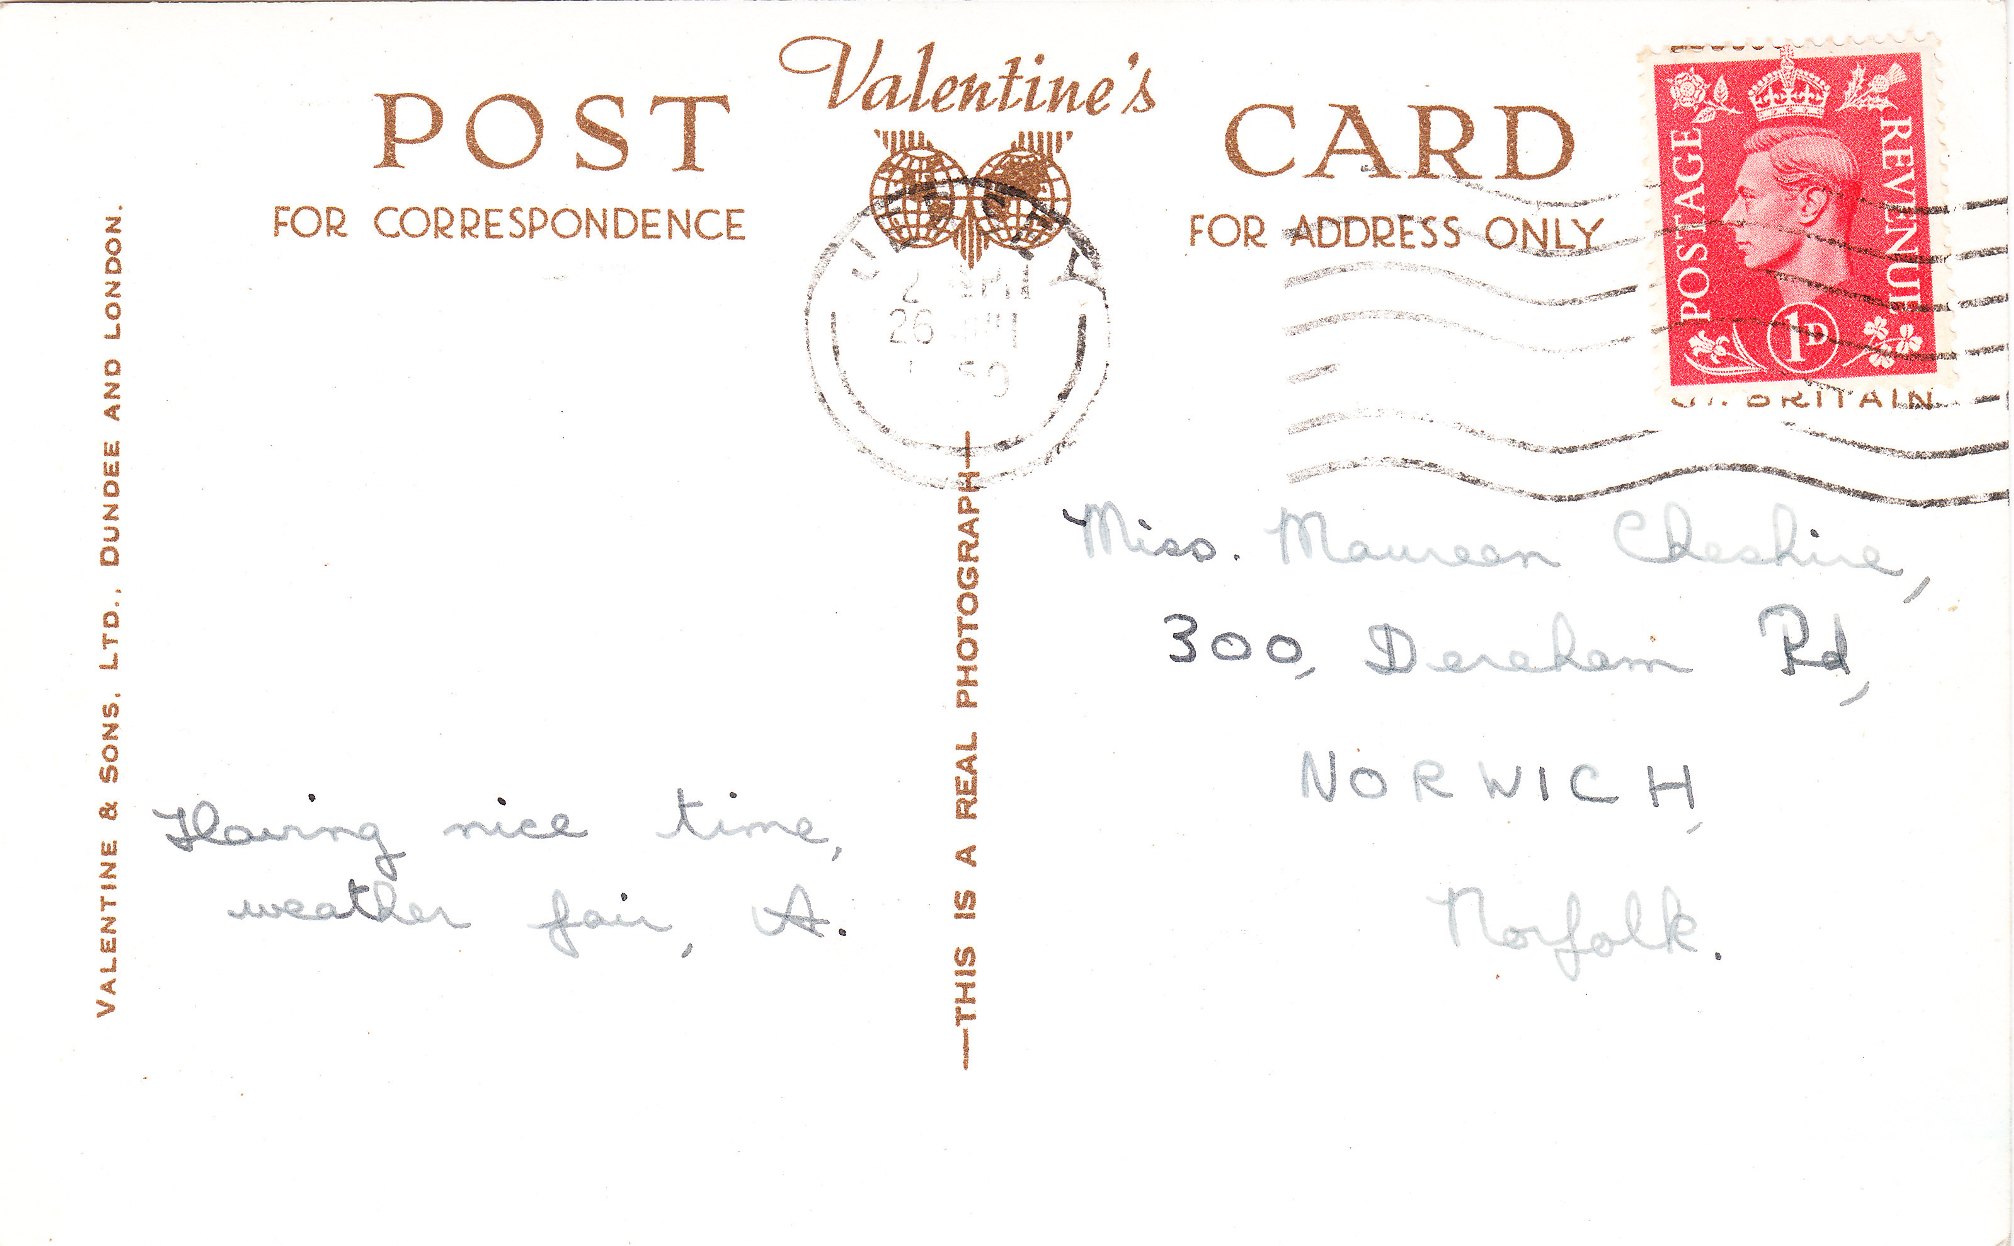 Valentine's
POST CARD
FOR CORRESPONDENCE
FOR ADDRESS ONLY
POSTAGE
REVENUE
1D
BRITAIN
JERSEY
26
VALENTINE & SONS. LTD., DUNDEE AND LONDON.
—THIS IS A REAL PHOTOGRAPH—
Having nice time,
weather fair, A.
Miss. Maureen Cheshire,
300, Dereham Rd,
NORWICH,
Norfolk.